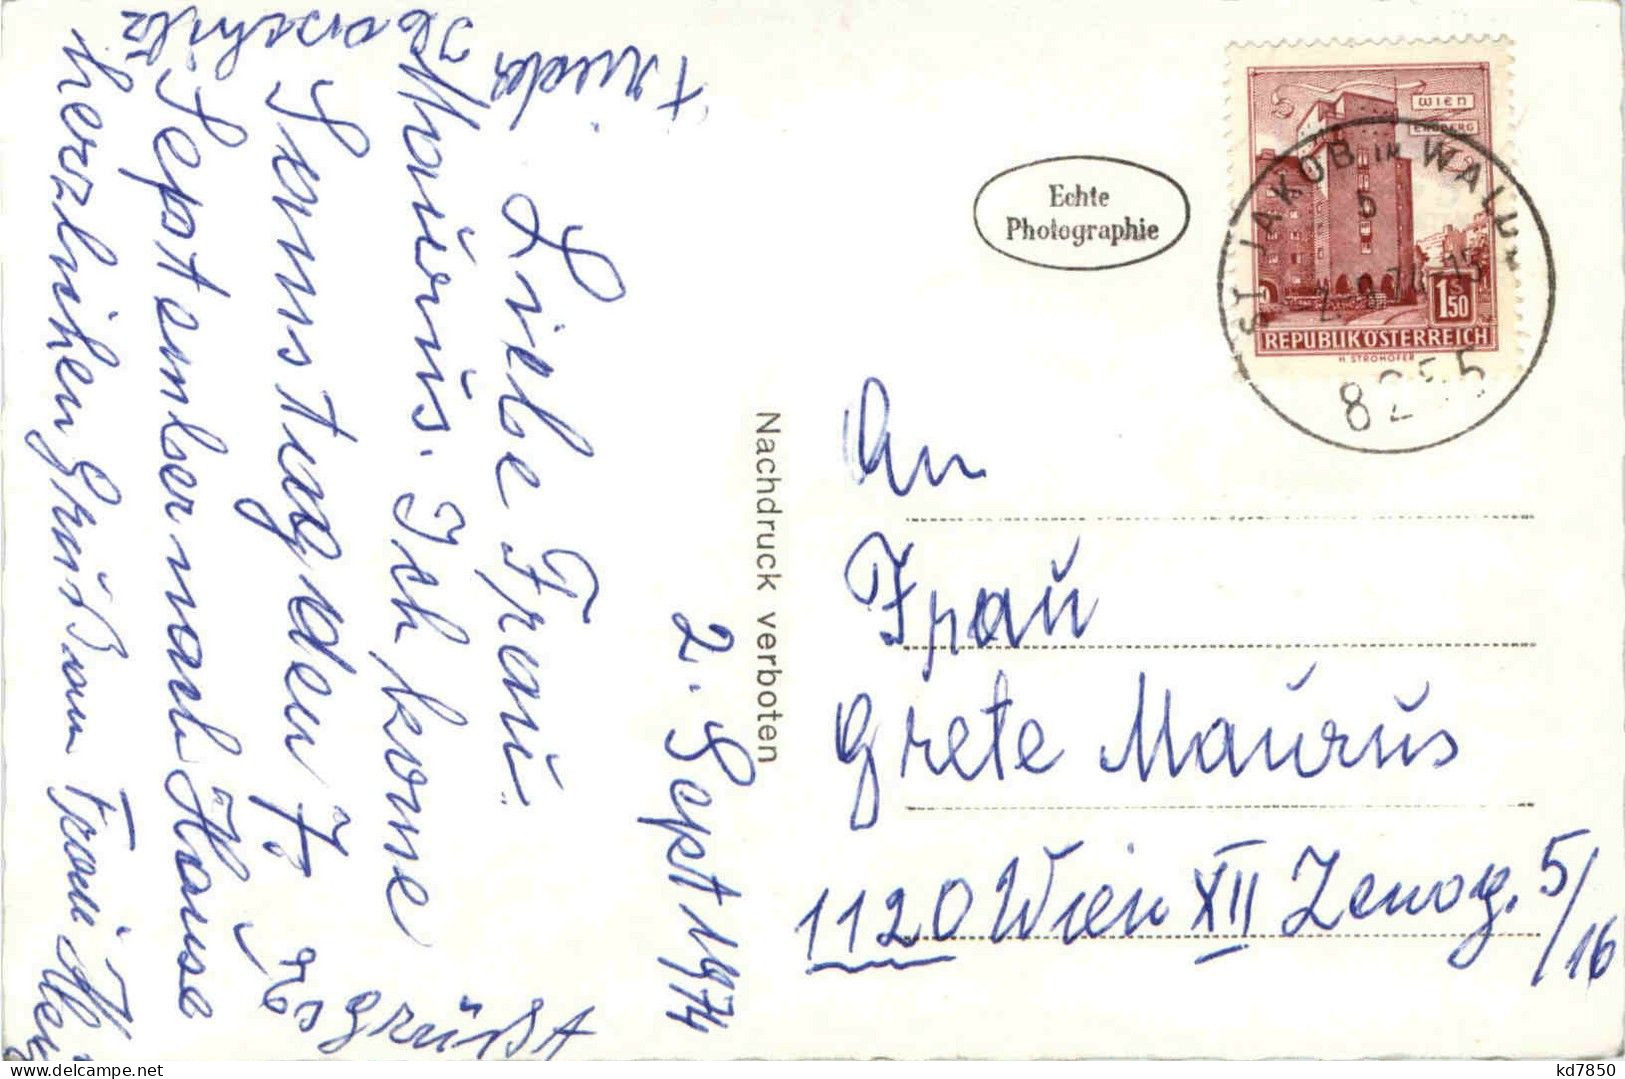 2. Sept 1974
Liebe Frau
Maurus. Ich kome
Samstag den 7.
September nach Hause
Es grüßt
herzlichen Gruß Frau
Frieda
Nachdruck verboten
Echte
Photographie
WIEN
ERDBERG
1 S 50
REPUBLIK ÖSTERREICH
H. STROHOFER
ST. JAKOB IM WALDE
b
8255
An
Frau
Grete Maurus
1120 Wien XII Zenog. 5/16
kd7850